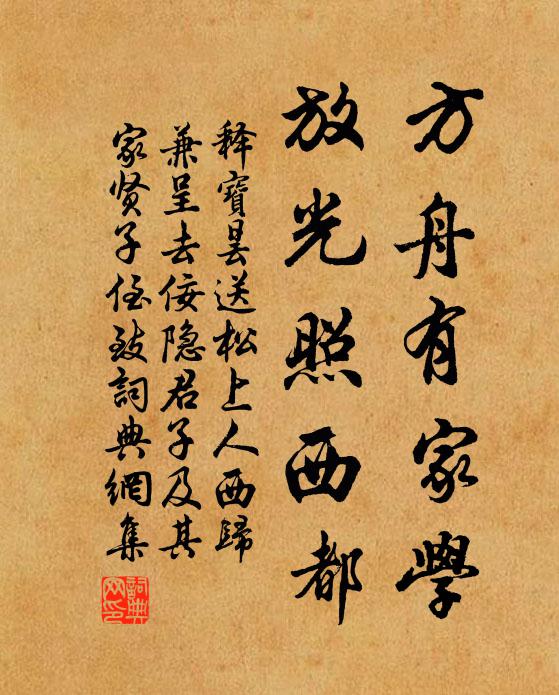 方舟有家學
放光照西都
释寶曇送松上人西歸
兼呈去佞隐君子及其
家贤子侄致詞典網集
詞典网印